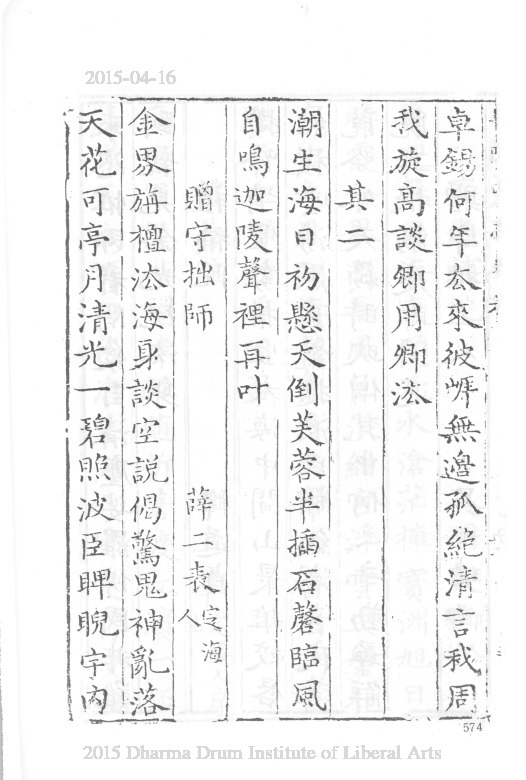 2015-04-16
卓錫何年厺來彼㟁無邉孤絶清言我周
我旋髙談卿用卿泫
其二
潮生海日初懸天倒芙蓉半揷石磬臨風
自鳴迦陵聲裡再叶
贈守拙師 薛二袠定海人
金界旃檀泫海身談空説偈驚鬼神亂落
天花可亭月清光一碧照波臣睥睨宇内
574
2015 Dharma Drum Institute of Liberal Arts